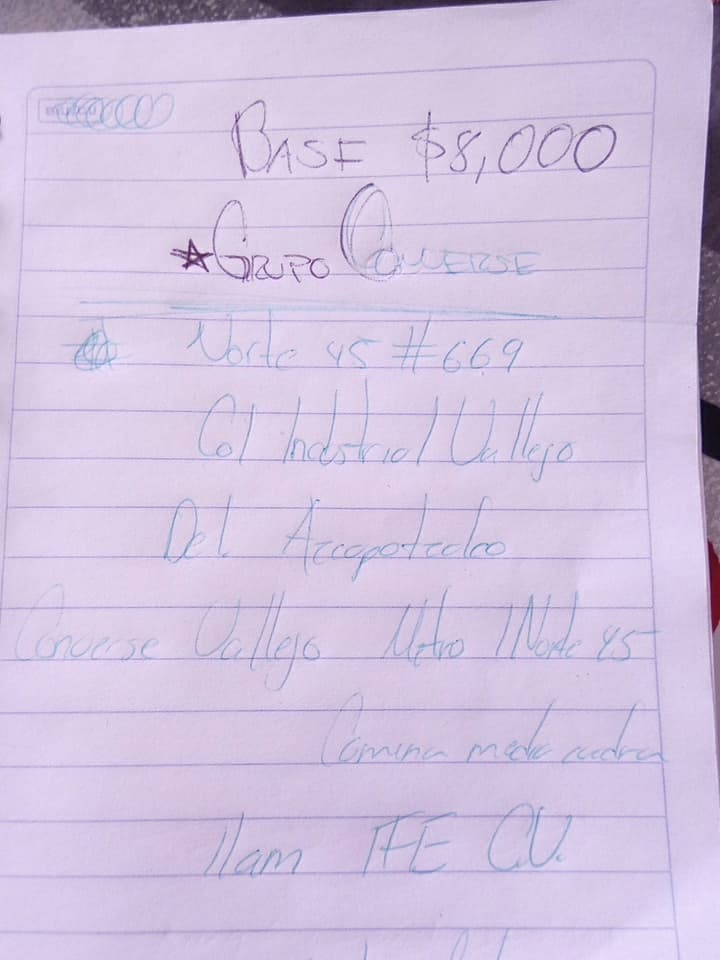 BASE $8,000
GRUPO CONVERSE
Norte 45 #669
Col Industrial Vallejo
Del Azcapotzalco
Converse Vallejo Metro Norte 45
Camina media cuadra
11am IFE C.V.